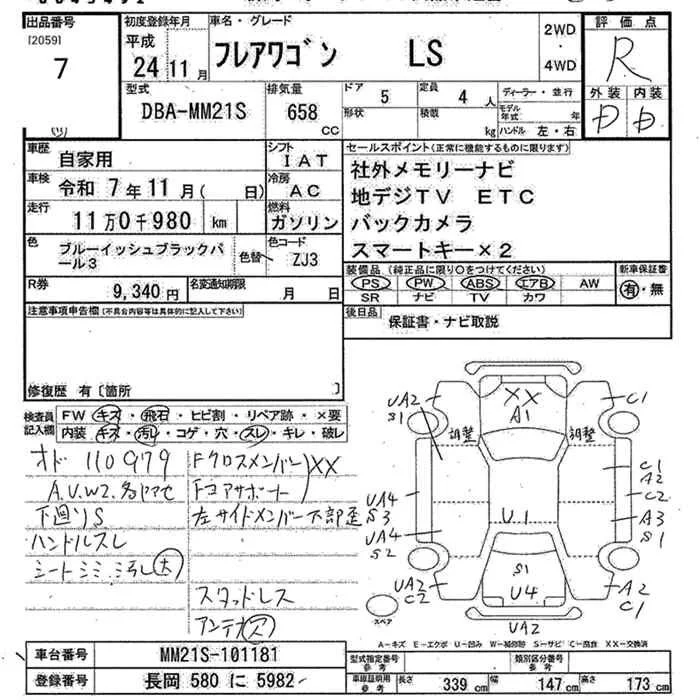 出品番号
[2059]
7
初度登録年月
平成
24 11月
車名・グレード
フレアワゴン LS
2WD
・
4WD
評価点
R
外装 内装
D D
型式
DBA-MM21S
排気量
658
CC
ドア 5
定員 4 人
形状
積載 kg
ディーラー・並行
モデル年式 年
ハンドル 左・右
車歴 自家用
シフト IAT
車検 令和 7年11月( 日)
冷房 AC
走行 11万0千980 km
燃料 ガソリン
色 ブルーイッシュブラックパール3
色替
色コード ZJ3
R券 9,340円
名変通知期限 月 日
セールスポイント(正常に機能するものに限ります)
社外メモリーナビ
地デジTV ETC
バックカメラ
スマートキー×2
装備品(純正品に限り○をつけてください)
PS PW ABS エアB AW
SR ナビ TV カワ
新車保証書
有・無
後日品 保証書・ナビ取説
注意事項申告欄(不具合内容等は具体的に記入して下さい)
修復歴 有〔箇所 〕
検査員記入欄
FW キズ・飛石・ヒビ割・リペア跡・×要
内装 キズ・汚れ・コゲ・穴・スレ・キレ・破レ
オド 110979
A.U.W2.多ヤマセ
下回りS
ハンドルスレ
シートシミ 汚レ大
Fクロスメンバー
Fコアサポート
XX
左サイドメンバー下部歪
スタッドレス
アンテナス
UA2
S1
XX
A1
C1
調整
調整
C1
A2
C2
UA4
S3
A3
S1
U1
UA4
S2
UA2
C2
S1
U4
A2
C1
UA2
スペア
A-キズ E-エクボ U-凹み W-補修跡 S-サビ C-腐食 XX-交換済
車台番号 MM21S-101181
型式指定番号 参考
類別区分番号 参考
登録番号 長岡 580 に 5982
車庫証明用 参考
長さ 339 cm
幅 147 cm
高さ 173 cm